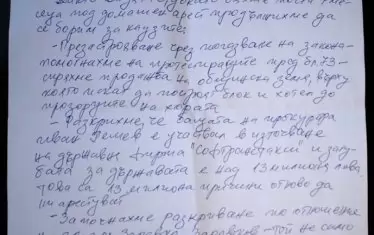 под домашен арест продължихме да
се борим за каузите:
- Предотвратяване чрез ползване на закона-
помогнахме на протестиращите пред бл. 73-
спряхме продажба на общинска земя, върху
която искаха да построят блок и хотел до
прозорците на хората
- Разкрихме, че бащата на прокурора
Иван Гешев е участвал в източване
на държавна фирма "Софтранстакси" и загу-
бата за държавата е над 13 милиона лева,
това са 13 милиона причини отново да
ни арестуват
- Започнахме разкриване по отношение
- той не само